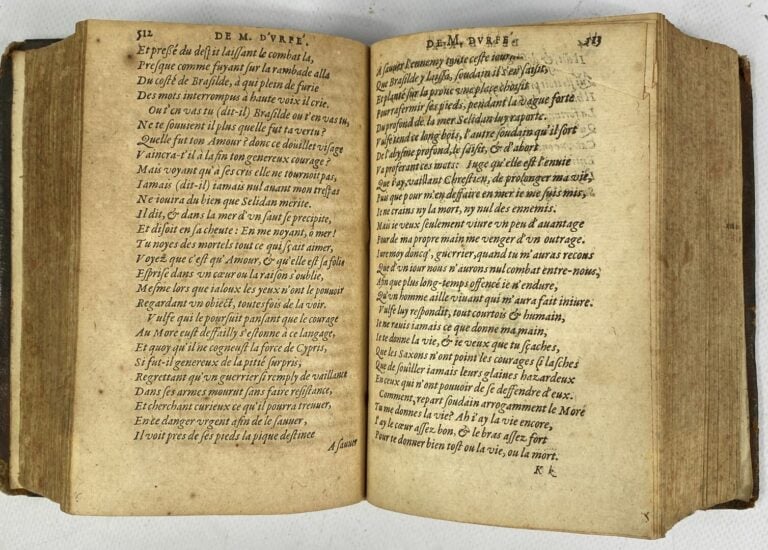 512 DE M. D'VRFÉ.
Et preßé du despit laissant le combat la,
Presque comme fuyant sur la rambade alla
Du costé de Brasilde, à qui plein de furie
Des mots interrompus à haute voix il crie.
Ou t'en vas tu (dit-il) Brasilde ou t'en vas tu,
Ne te souuient il plus quelle fut ta vertu?
Quelle fut ton Amour? donc ce doüillet visage
Vaincra-t'il à la fin ton genereux courage?
Mais voyant qu'à ses cris elle ne tournoit pas,
Iamais (dit-il) iamais nul auant mon trespas
Ne iouïra du bien que Selidan merite.
Il dit, & dans la mer d'vn saut se precipite,
Et disoit en sa cheute: En me noyant, ô mer!
Tu noyes des mortels tout ce qui sçait aimer,
Voyez que c'est qu'Amour, & qu'elle est sa folie
Esprise dans vn cœur ou la raison s'oublie,
Mesme lors que ialoux les yeux n'ont le pouuoir
Regardant vn obiect, toutesfois de la voir.
Vulfe qui le poursuit pansant que le courage
Au More eust deffailly s'estonne à ce langage,
Et quoy qu'il ne cogneust la force de Cypris,
Si fut-il genereux de la pitié surpris,
Regrettant qu'vn guerrier si remply de vaillance
Dans ses armes mourut sans faire resistance,
Et cherchant curieux ce qu'il pourra treuuer,
En ce danger vrgent afin de le sauuer,
Il voit pres de ses pieds la pique destinee
A sauuer
DE M. D'VRFÉ. 513
A sauuer l'ennemy toute ceste iournee
Que Brasilde y laissa, soudain il s'en saisit,
Et planté sur la prouë vne place choisit
Pour rafermir ses pieds, pendant la vague forte
Du profond de la mer Selidan luy raporte.
Vulfe tend ce long bois, l'autre soudain qu'il sort
De l'abysme profond, le saisit, & d'abort
Va proferant ces mots: Iuge qu'elle est l'enuie
Que i'ay, vaillant Chrestien, de prolonger ma vie,
Puis que pour m'en deffaire en mer ie me suis mis,
Ie ne crains ny la mort, ny nul des ennemis.
Mais ie veux seulement viure vn peu d'auantage
Pour de ma propre main me venger d'vn outrage.
Iure moy doncq', guerrier, quand tu m'auras recous
Que d'vn tour nous n'aurons nul combat entre-nous,
Afin que plus long-temps offencé ie n'endure,
Qu'vn homme aille viuant qui m'aura fait iniure.
Vulfe luy respondit, tout courtois & humain,
Ie ne rauis iamais ce que donne ma main,
Ie te donne la vie, & ie veux que tu sçaches,
Que les Saxons n'ont point les courages si lasches
Que de souiller iamais leurs glaines hazardeux
En ceux qui n'ont pouuoir de se deffendre d'eux.
Comment, repart soudain arrogamment le Moré
Tu me donnes la vie? Ah i'ay la vie encore,
I'ay le cœur assez bon, & le bras assez fort
Pour te donner bien tost ou la vie, ou la mort.
K k